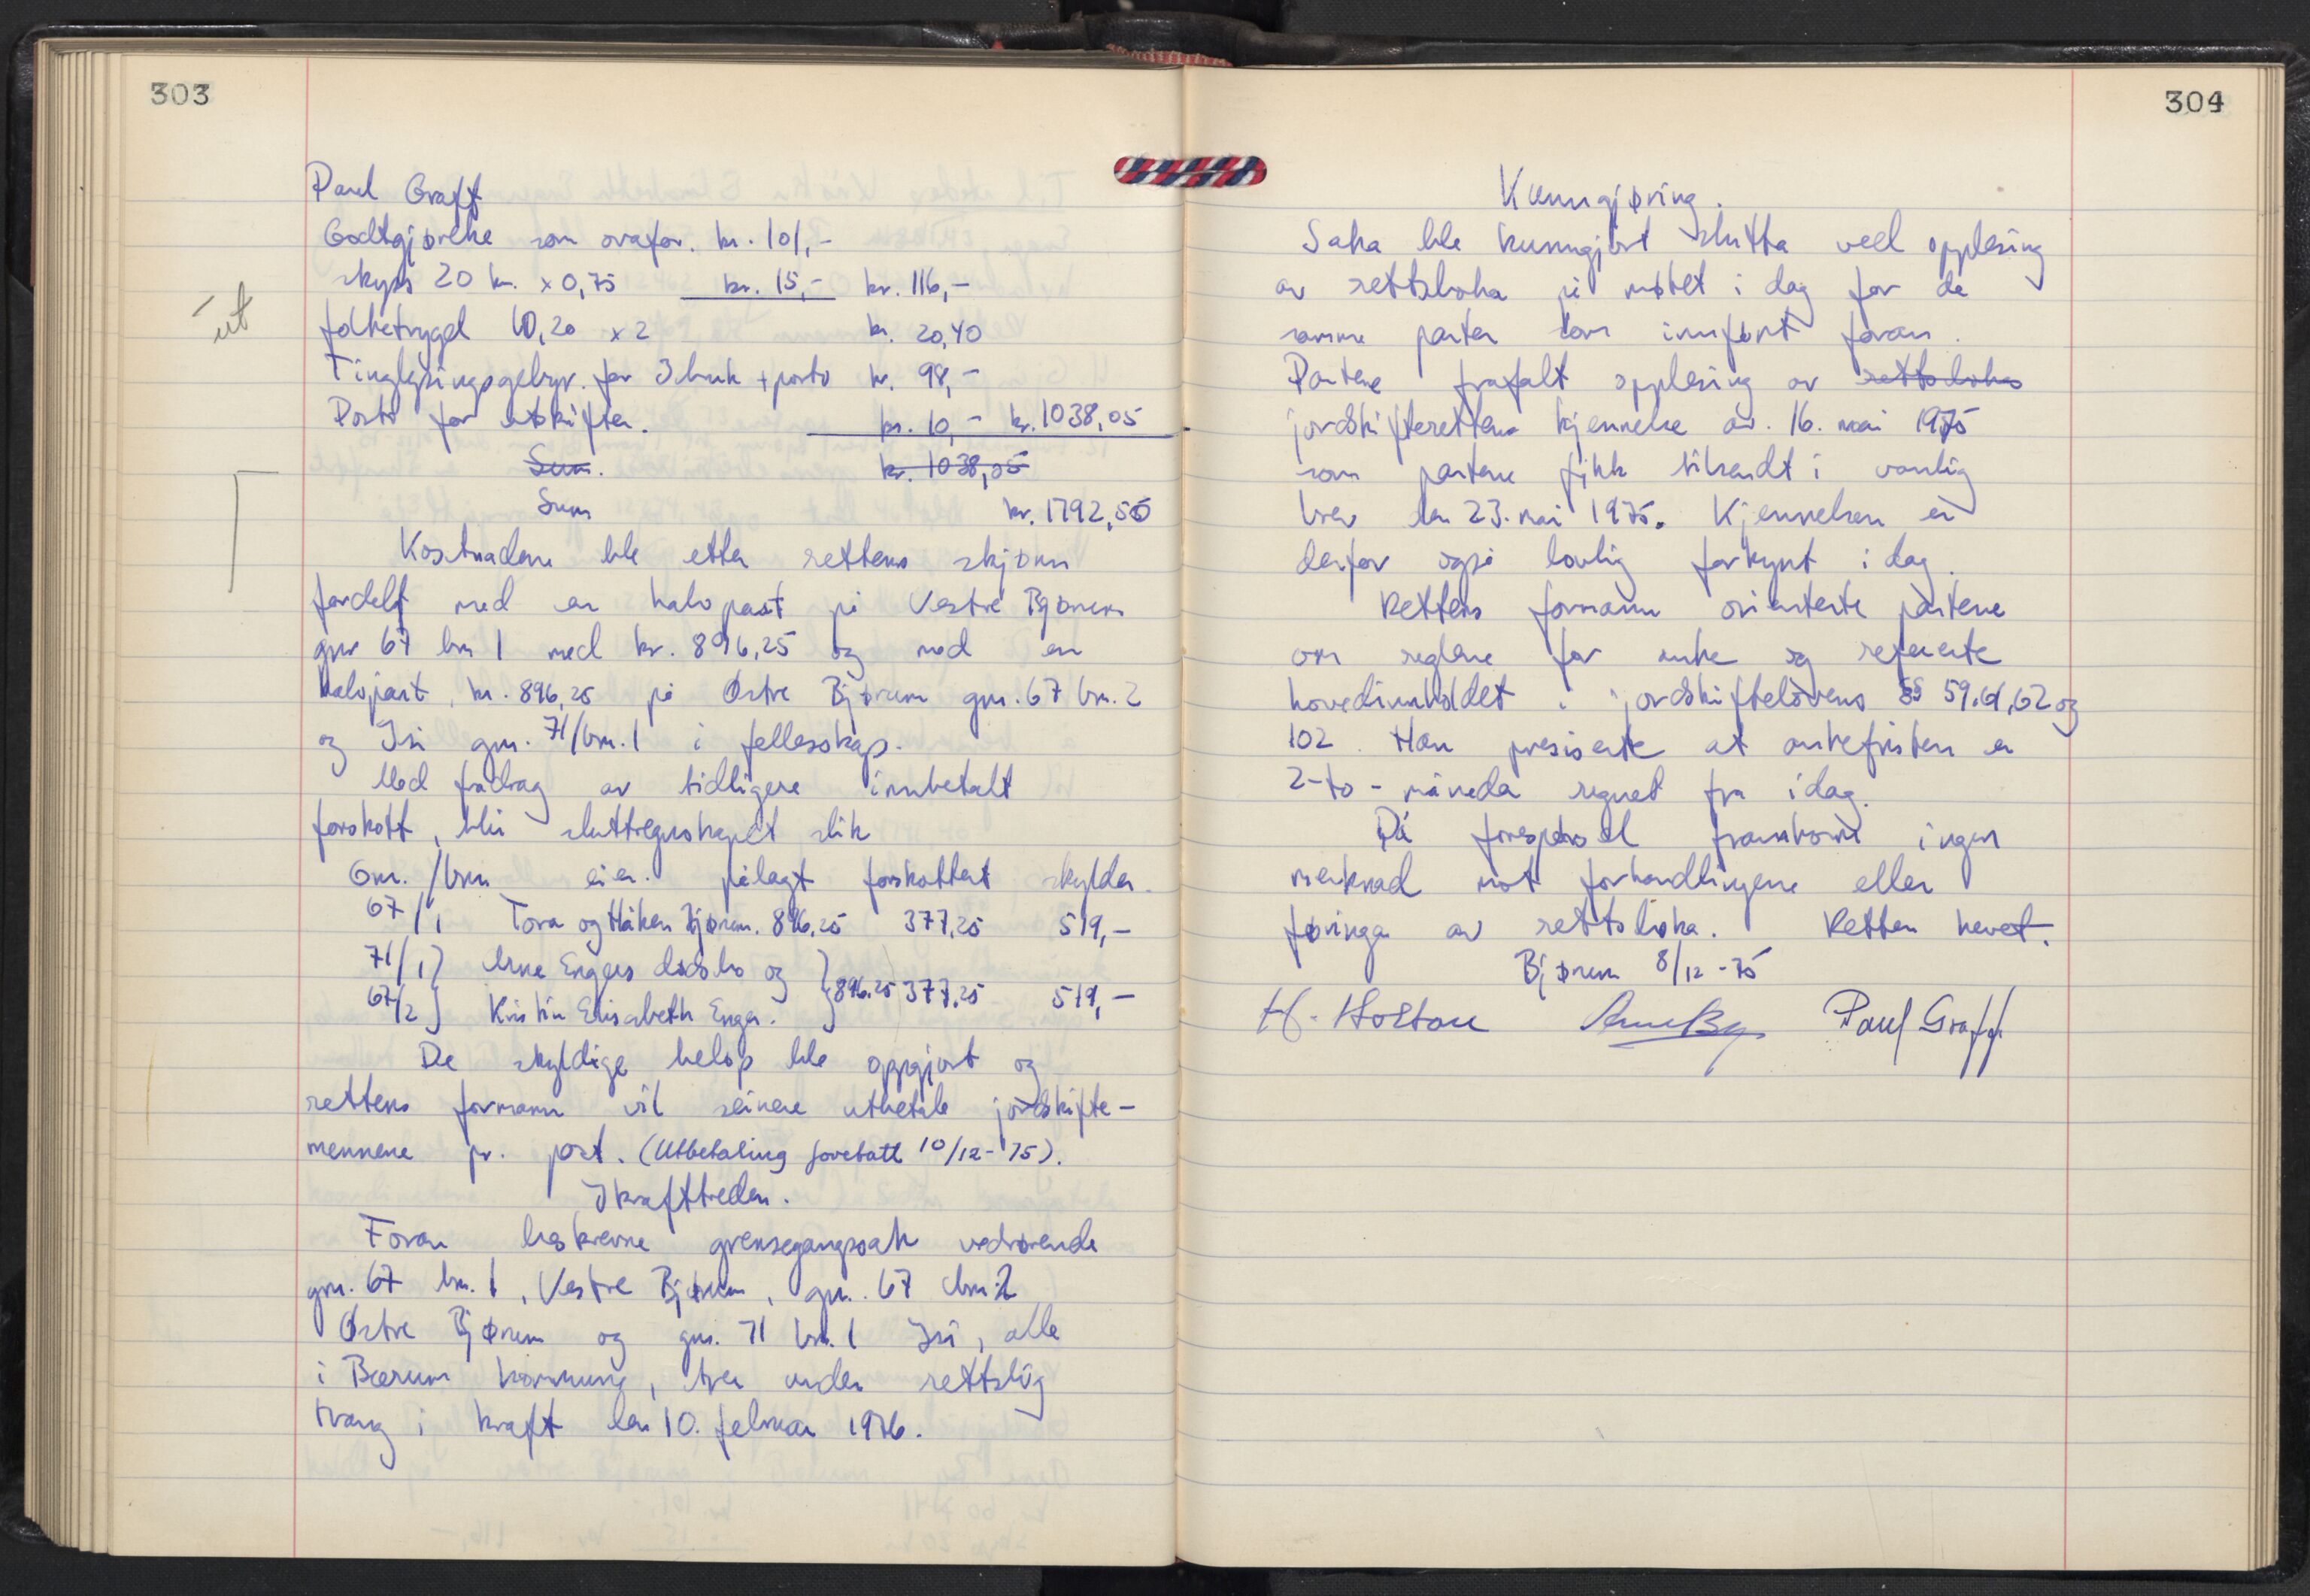 303
Paul Graff
Godtgjørelse som ovafor. kr. 101,-
skyss 20 km. x 0,75 kr. 15,- kr. 116,-
folketrygd 10,20 x 2 kr. 20,40
Tinglysingsgebyr. for 3 bruk + porto kr. 98,-
Porto for utskrifter. kr. 10,- kr. 1038,05
Sum. kr. 1038,05
Sum kr. 1792,50
ut
Kostnadene ble etter rettens skjønn
fordelt med en halvpart på Vestre Bjørum
gnr 67 bnr 1 med kr. 896,25 og med en
halvpart, kr. 896,25 på Østre Bjørum gnr. 67 bnr. 2
og Isi gnr. 71/bnr. 1 i fellesskap.
Med fradrag av tidligere innbetalt
forskott, blir sluttregnskapet slik
Gnr. /bnr eier. pålagt forskottert skylder.
67/1 Tora og Håken Bjørum. 896,25 377,25 519,-
71/1} Arne Engers dødsbo og
67/2} Kristin Elisabeth Enger. } 896.25 377,25 519,-
De skyldige beløp ble oppgjort og
rettens formann vil seinere utbetale jordskifte-
mennene pr. post. (Utbetaling foretatt 10/12-75).
Ikrafttreden.
Foran beskrevne grensegangssak vedrørende
gnr. 67 bnr. 1, Vestre Bjørum, gnr. 67 bnr. 2
Østre Bjørum og gnr. 71 bnr. 1 Isi, alle
i Bærum kommune, trer under rettslig
tvang i kraft den 10. februar 1976.
304
Kunngjøring.
Saka ble kunngjort slutta ved opplesing
av rettsboka på møtet i dag for de
samme parter som innført foran.
Partene frafalt opplesing av rettsboka
jordskifterettens kjennelse av. 16. mai 1975
som partene fikk tilsendt i vanlig
brev den 23. mai 1975. Kjennelsen er
derfor også lovlig forkynt i dag.
Rettens formann orienterte partene
om reglene for anke og refererte
hovedinnholdet i jordskiftelovens §§ 59, 61, 62 og
102. Han presiserte at ankefristen er
2-to-måneder regnet fra idag.
På forespørsel framkom ingen
merknad mot forhandlingene eller
føringa av rettsboka. Retten hevet.
Bjørum 8/12-75
H. Holtan Paul Graff